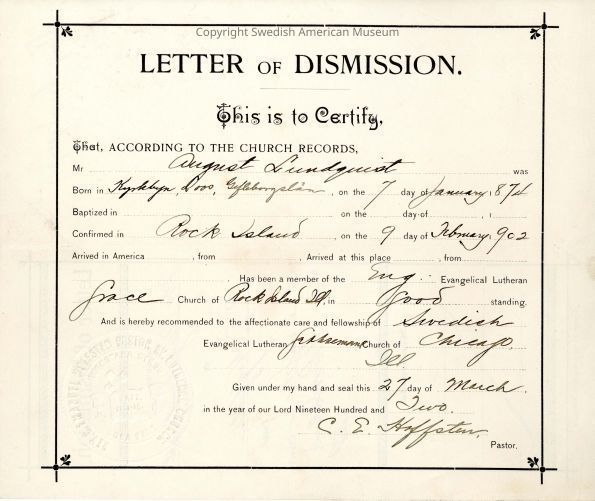 Copyright Swedish American Museum
LETTER OF DISMISSION.
This is to Certify,
That, ACCORDING TO THE CHURCH RECORDS,
Mr August Lundquist was
Born in Kyrkbyn, Loos, Gefleborgslän, on the 7 day of January, 1874
Baptized in on the day of , 1
Confirmed in Rock Island, on the 9 day of February, 1902
Arrived in America , from Arrived at this place , from
. Has been a member of the Eng. Evangelical Lutheran
Grace Church of Rock Island Ill, in good standing.
And is hereby recommended to the affectionate care and fellowship of Swedish
Evangelical Lutheran Gethsemane Church of Chicago,
Ill.
Given under my hand and seal this 27 day of March,
in the year of our Lord Nineteen Hundred and Two.
C. E. Hoffsten,
Pastor.